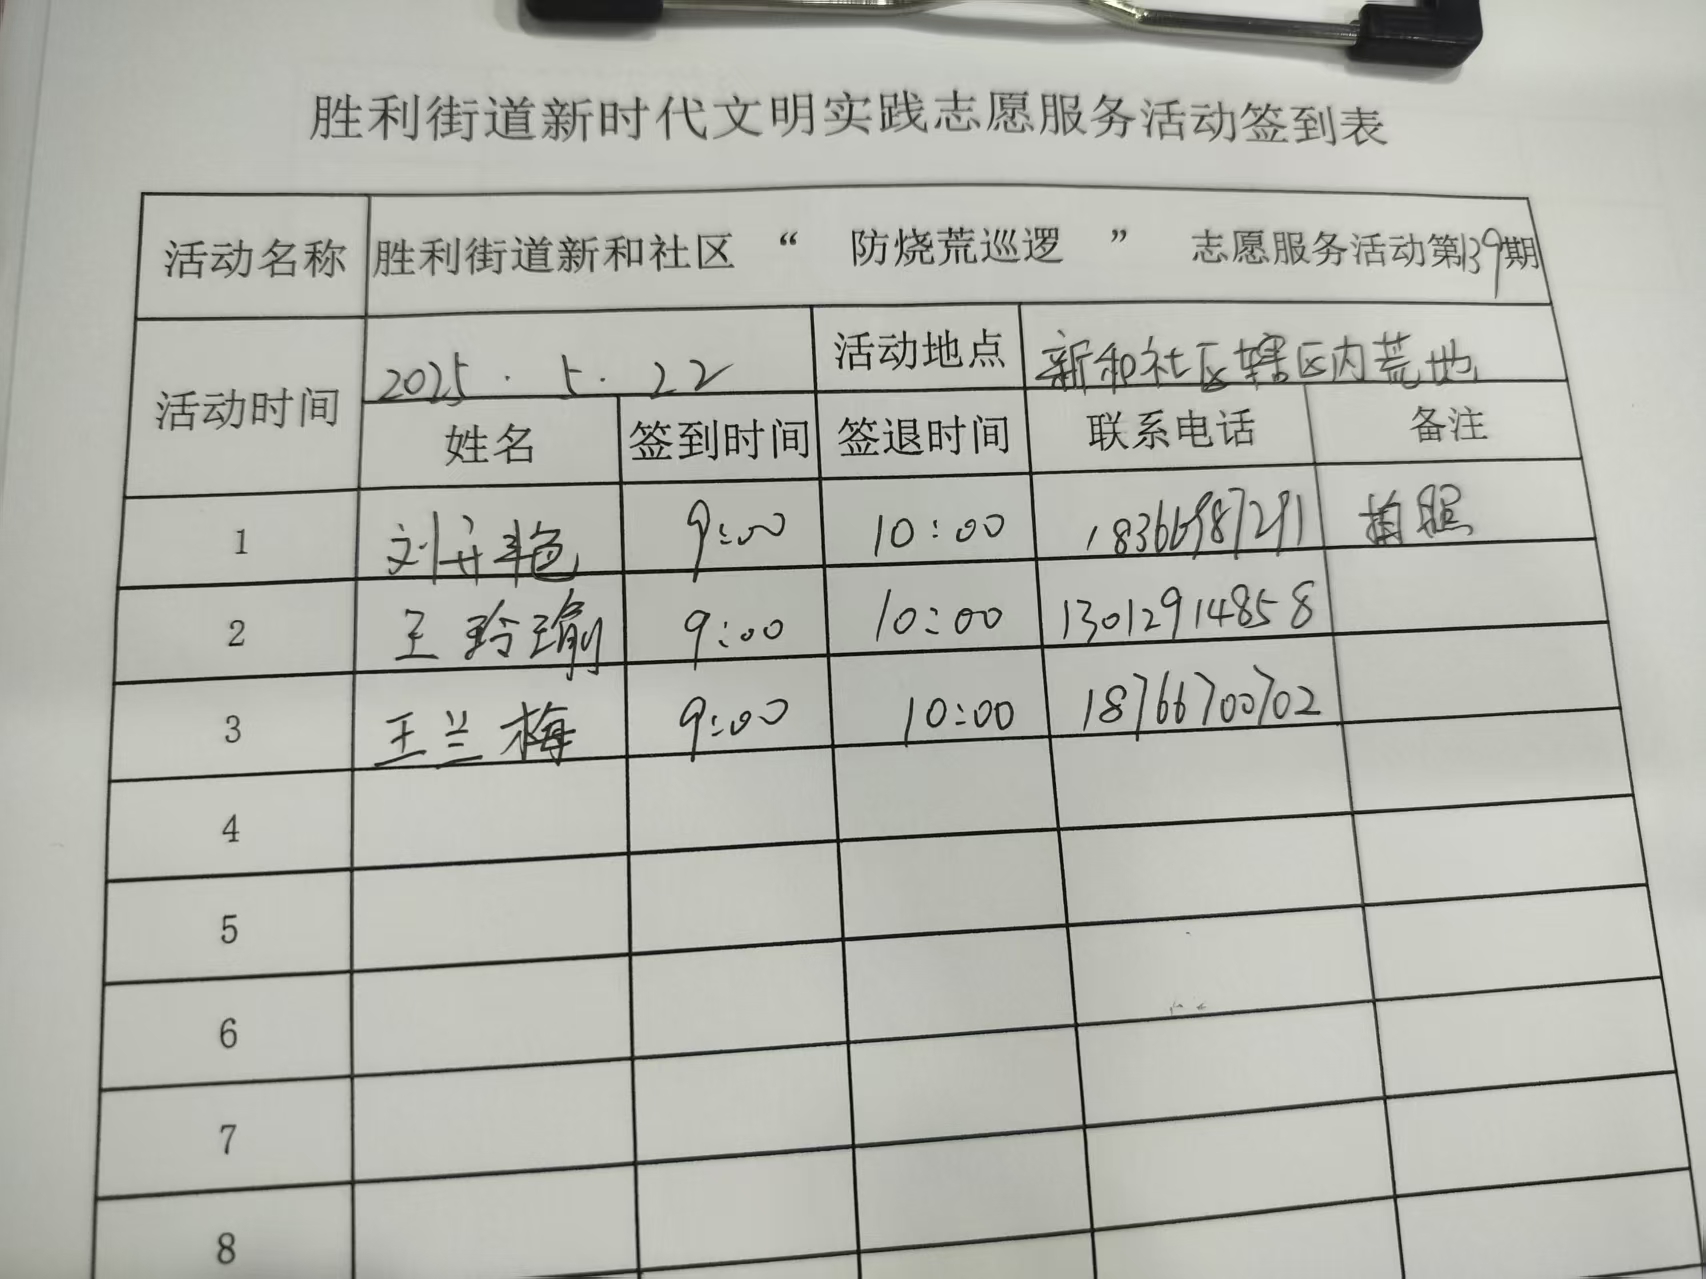 胜利街道新时代文明实践志愿服务活动签到表
活动名称 胜利街道新和社区 “ 防烧荒巡逻 ” 志愿服务活动第139期
活动时间 2025.5.22 活动地点 新和社区辖区内荒地
姓名 签到时间 签退时间 联系电话 备注
1 刘丹艳 9:00 10:00 18366987291 拍照
2 王玲瑜 9:00 10:00 13012914858
3 王兰梅 9:00 10:00 18766700702
4
5
6
7
8